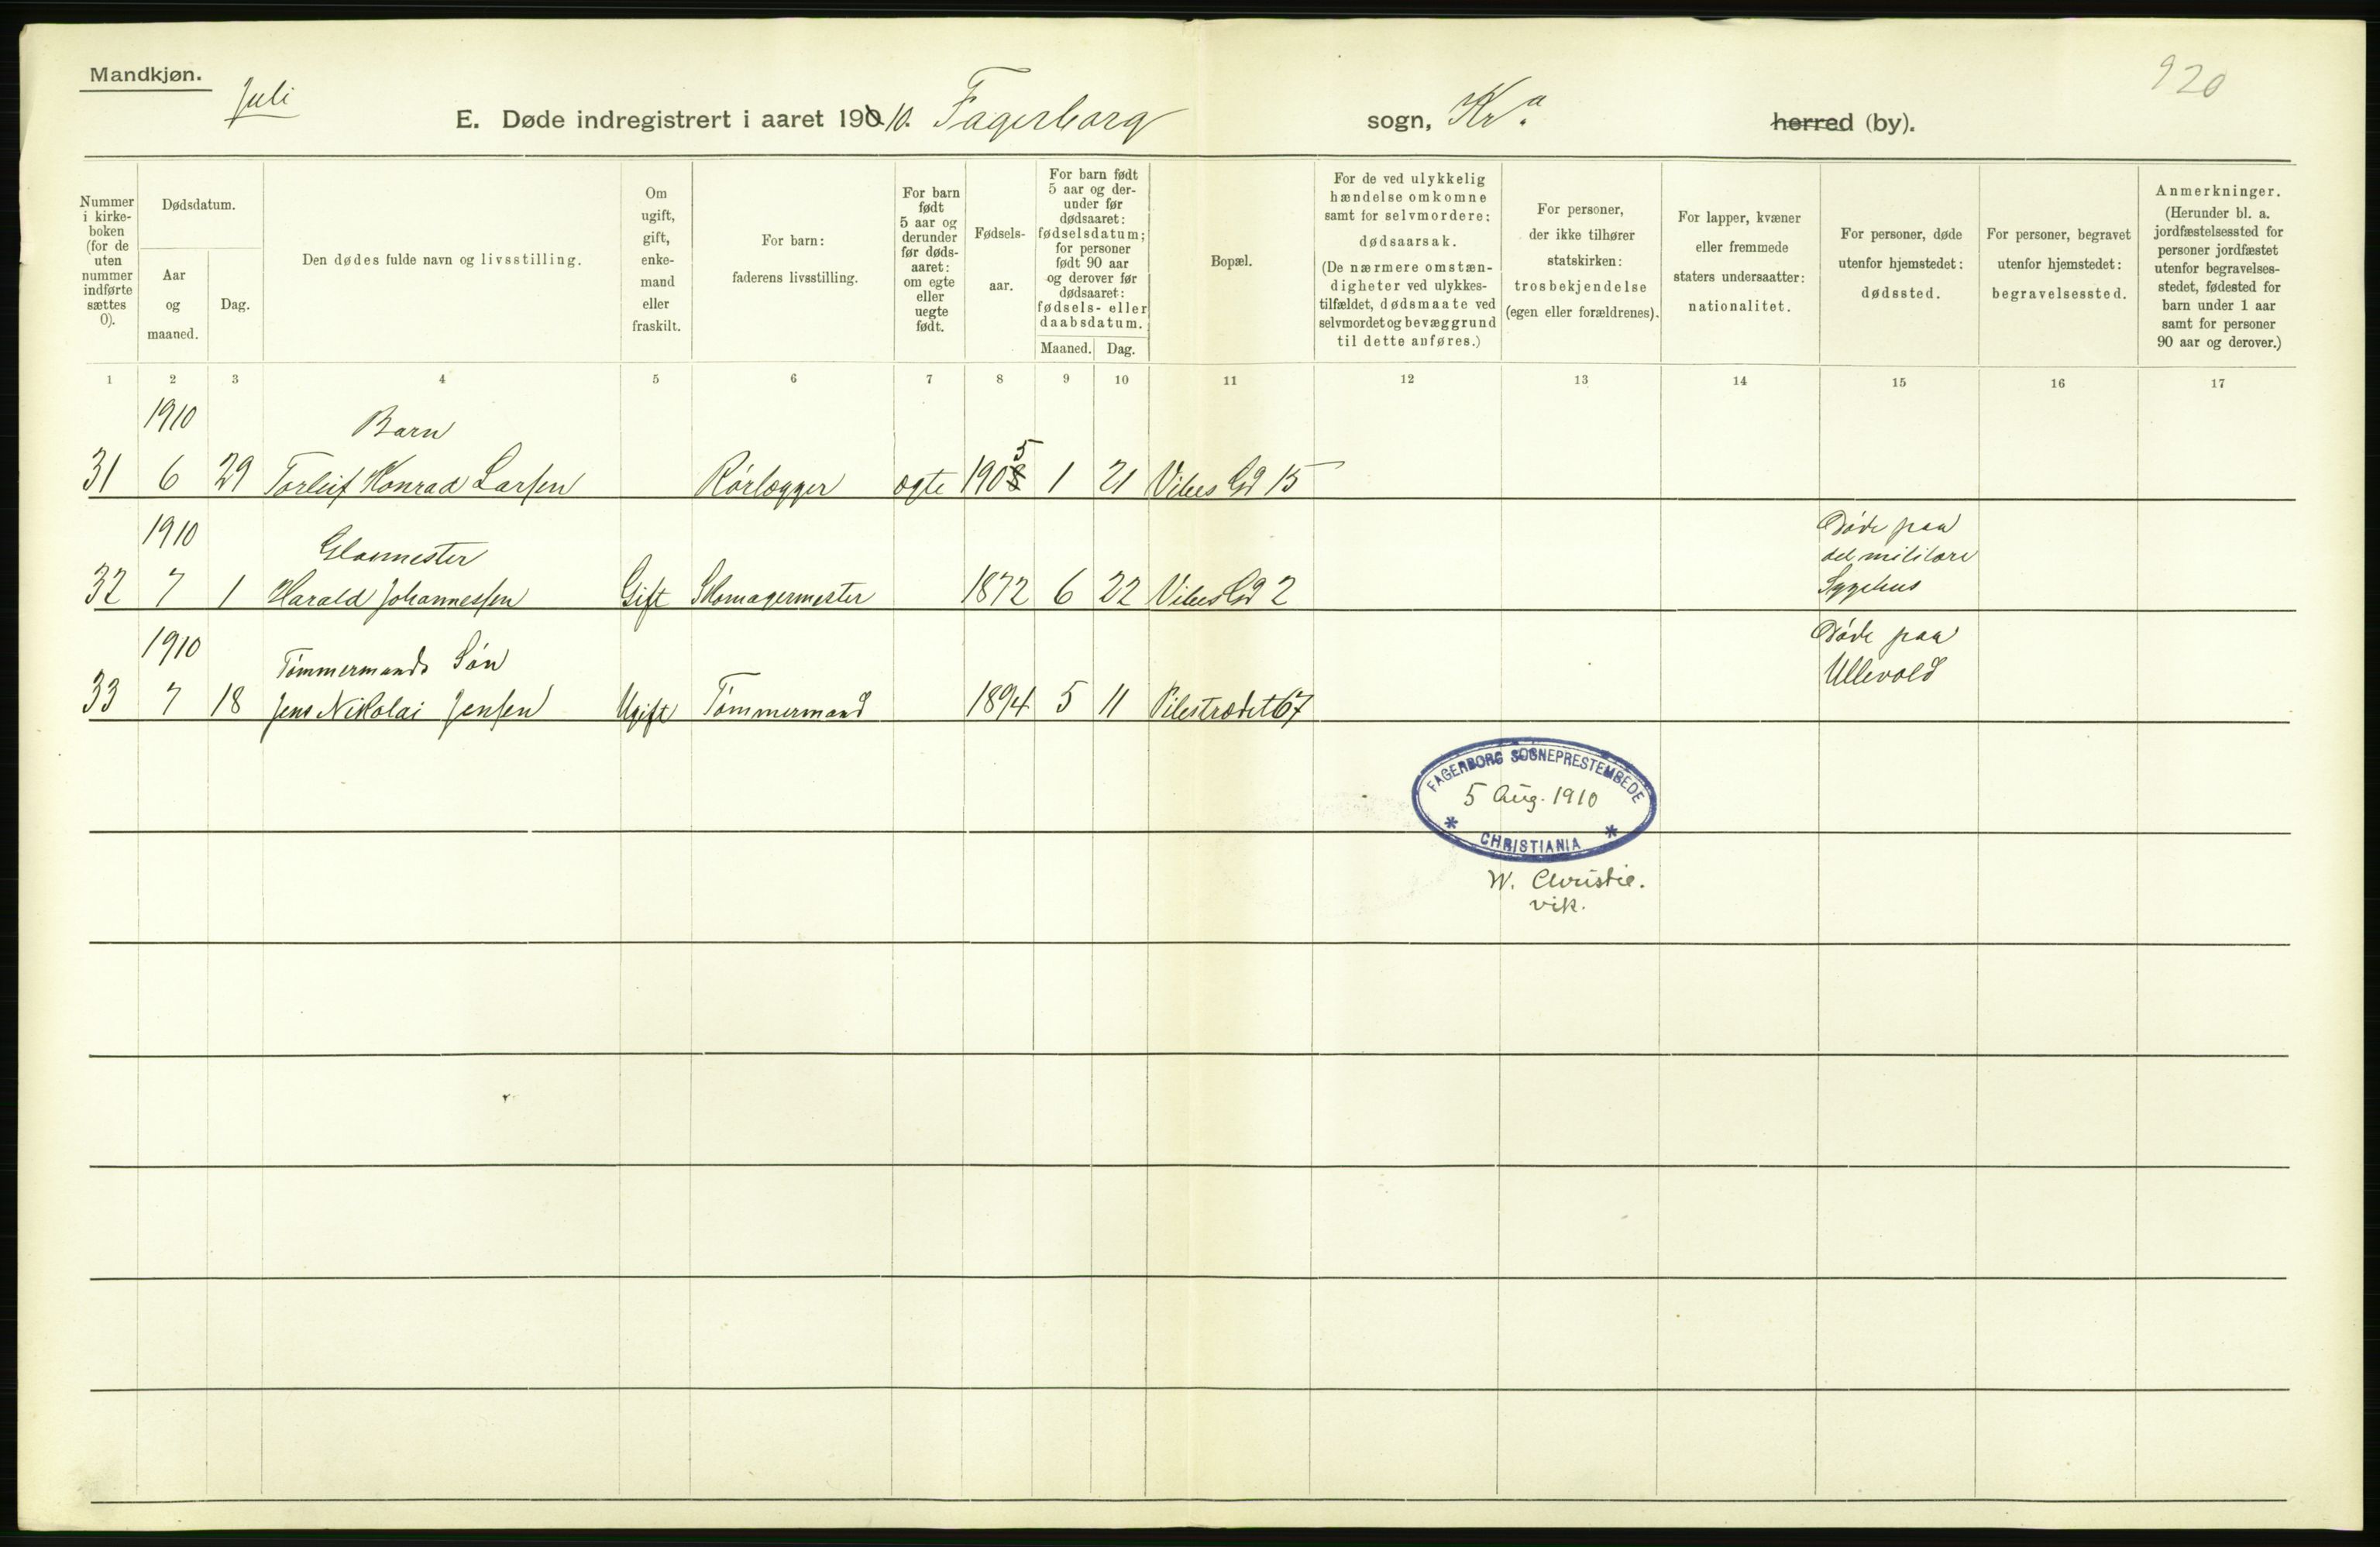 Mandkjøn.
Juli
920
E. Døde indregistrert i aaret 1910. Fagerborg sogn, Kr.a herred (by).
Nummer i kirkeboken (for de uten nummer indførte sættes 0).
Dødsdatum.
Aar og maaned.
Dag.
Den dødes fulde navn og livsstilling.
Om ugift, gift, enkemand eller fraskilt.
For barn: faderens livsstilling.
For barn født 5 aar og derunder før dødsaaret: om egte eller uegte født.
Fødselsaar.
For barn født 5 aar og derunder før dødsaaret: fødselsdatum; for personer født 90 aar og derover før dødsaaret: fødsels- eller daabsdatum.
Maaned. Dag.
Bopæl.
For de ved ulykkelig hændelse omkomne samt for selvmordere: dødsaarsak. (De nærmere omstændigheter ved ulykkestilfældet, dødsmaate ved selvmordet og bevæggrund til dette anføres.)
For personer, der ikke tilhører statskirken: trosbekjendelse (egen eller forældrenes).
For lapper, kvæner eller fremmede staters undersaatter: nationalitet.
For personer, døde utenfor hjemstedet: dødssted.
For personer, begravet utenfor hjemstedet: begravelsessted.
Anmerkninger. (Herunder bl. a. jordfæstelsessted for personer jordfæstet utenfor begravelsesstedet, fødested for barn under 1 aar samt for personer 90 aar og derover.)
1 2 3 4 5 6 7 8 9 10 11 12 13 14 15 16 17
1910 Barn
31 6 29 Torleif Konrad Larsen Rørlægger ægte 1905 1 21 Vibes Gd 15
1910 Døde paa
det militære
32 7 1 Harald Johannessen Gift Skomagermester 1872 6 22 Vibes Gd 2 Sygehus
1910 Tømmermands Søn Døde paa
Ullevold
33 7 18 Jens Nikolai Jensen Ugift Tømmermand 1894 5 11 Pilestrædet 67
FAGERBORG SOGNEPRESTEMBEDE
5 Aug. 1910
* CHRISTIANIA *
W. Christie.
vik.